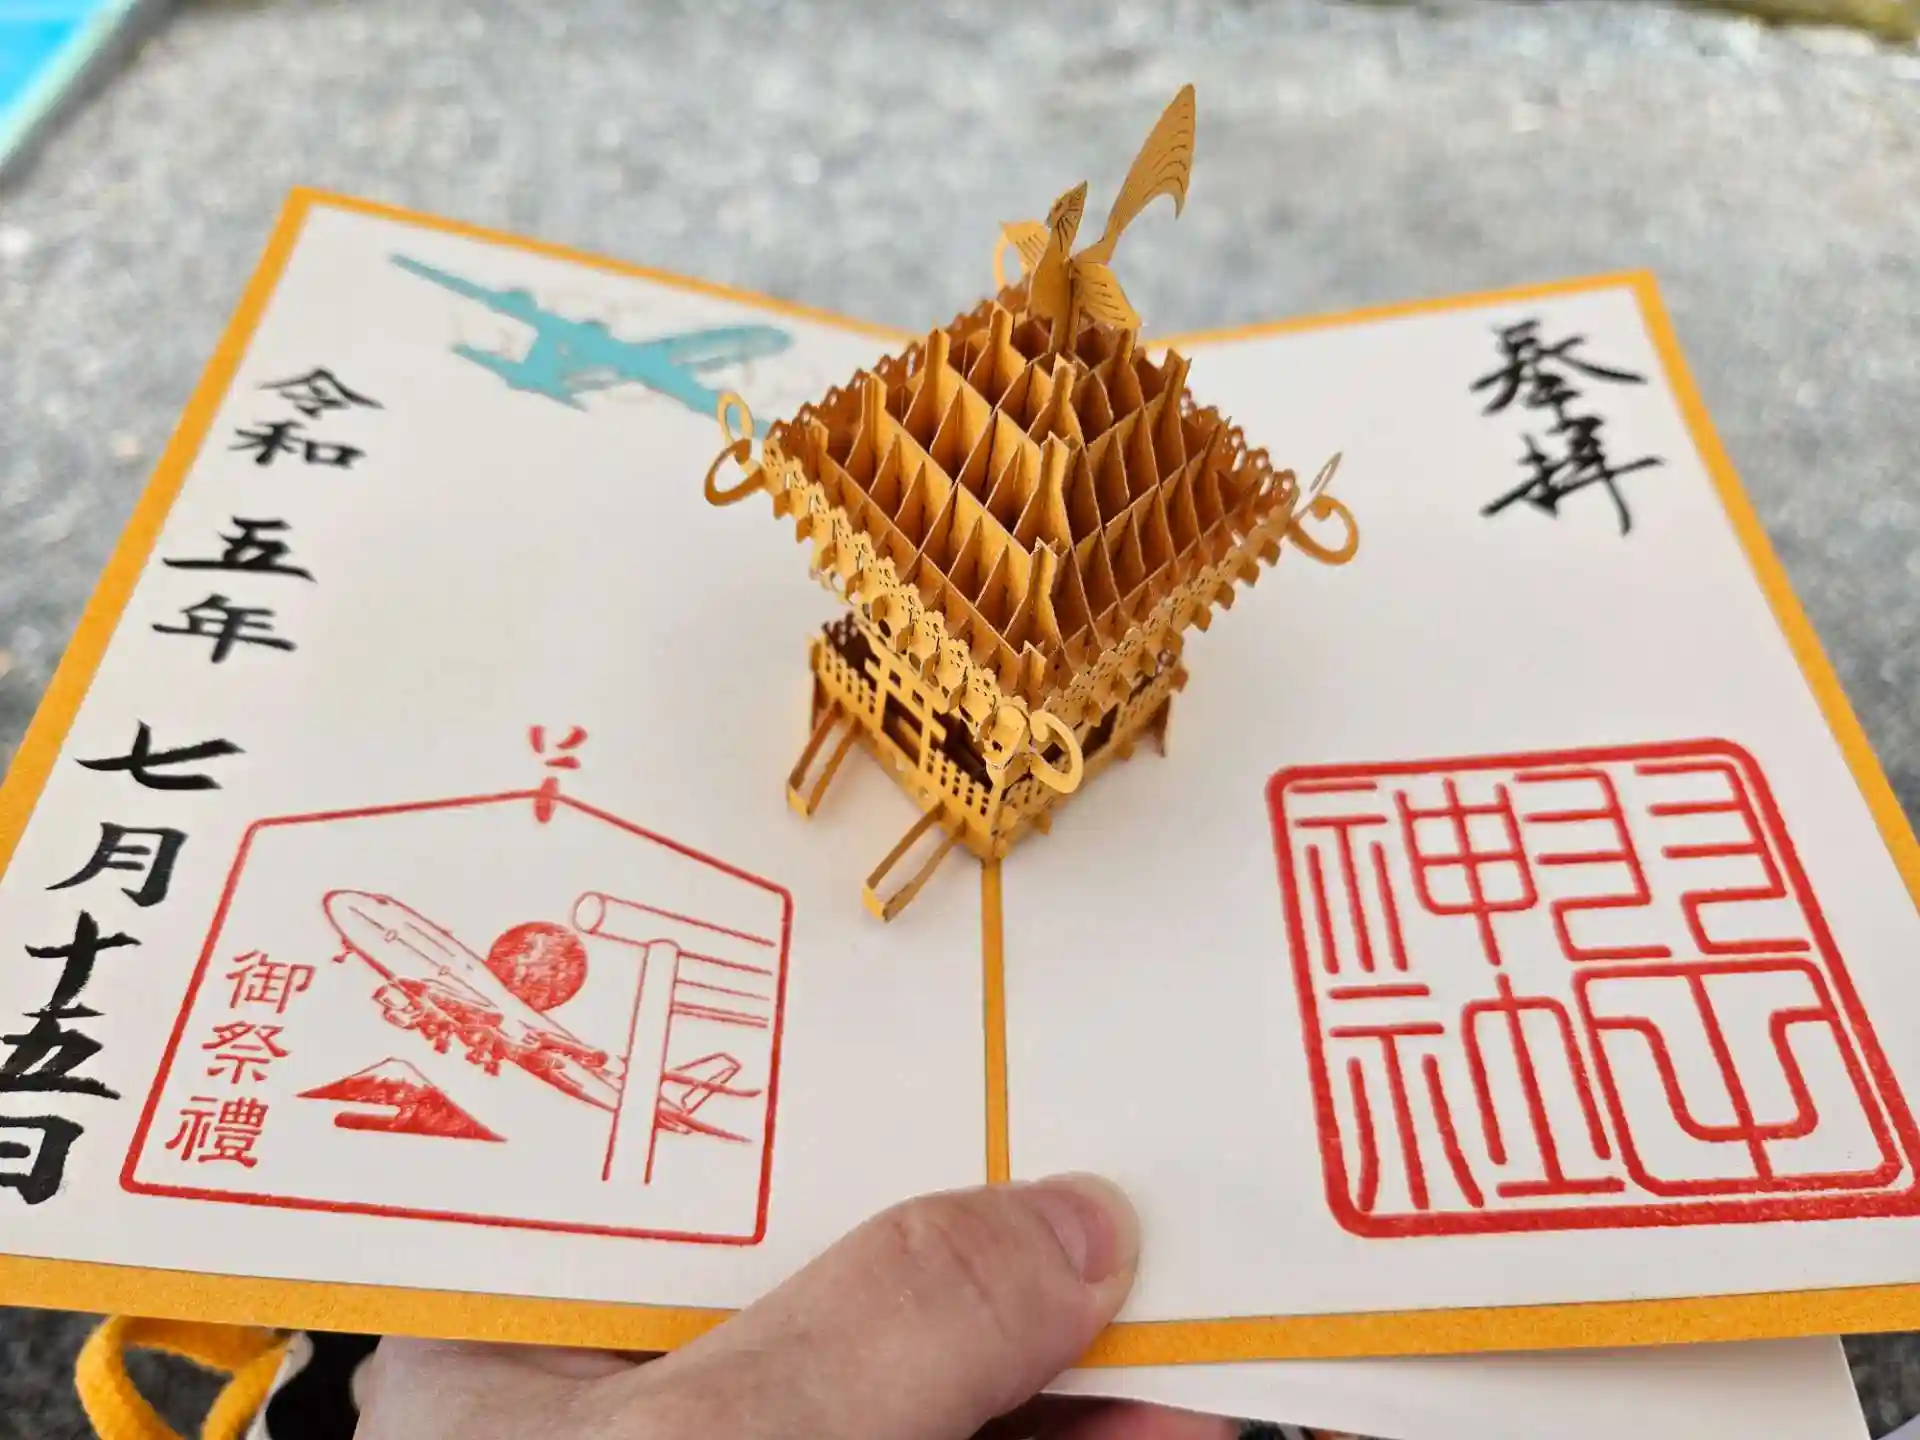 奉拝
羽田
神社
令和五年七月十五日
御祭禮